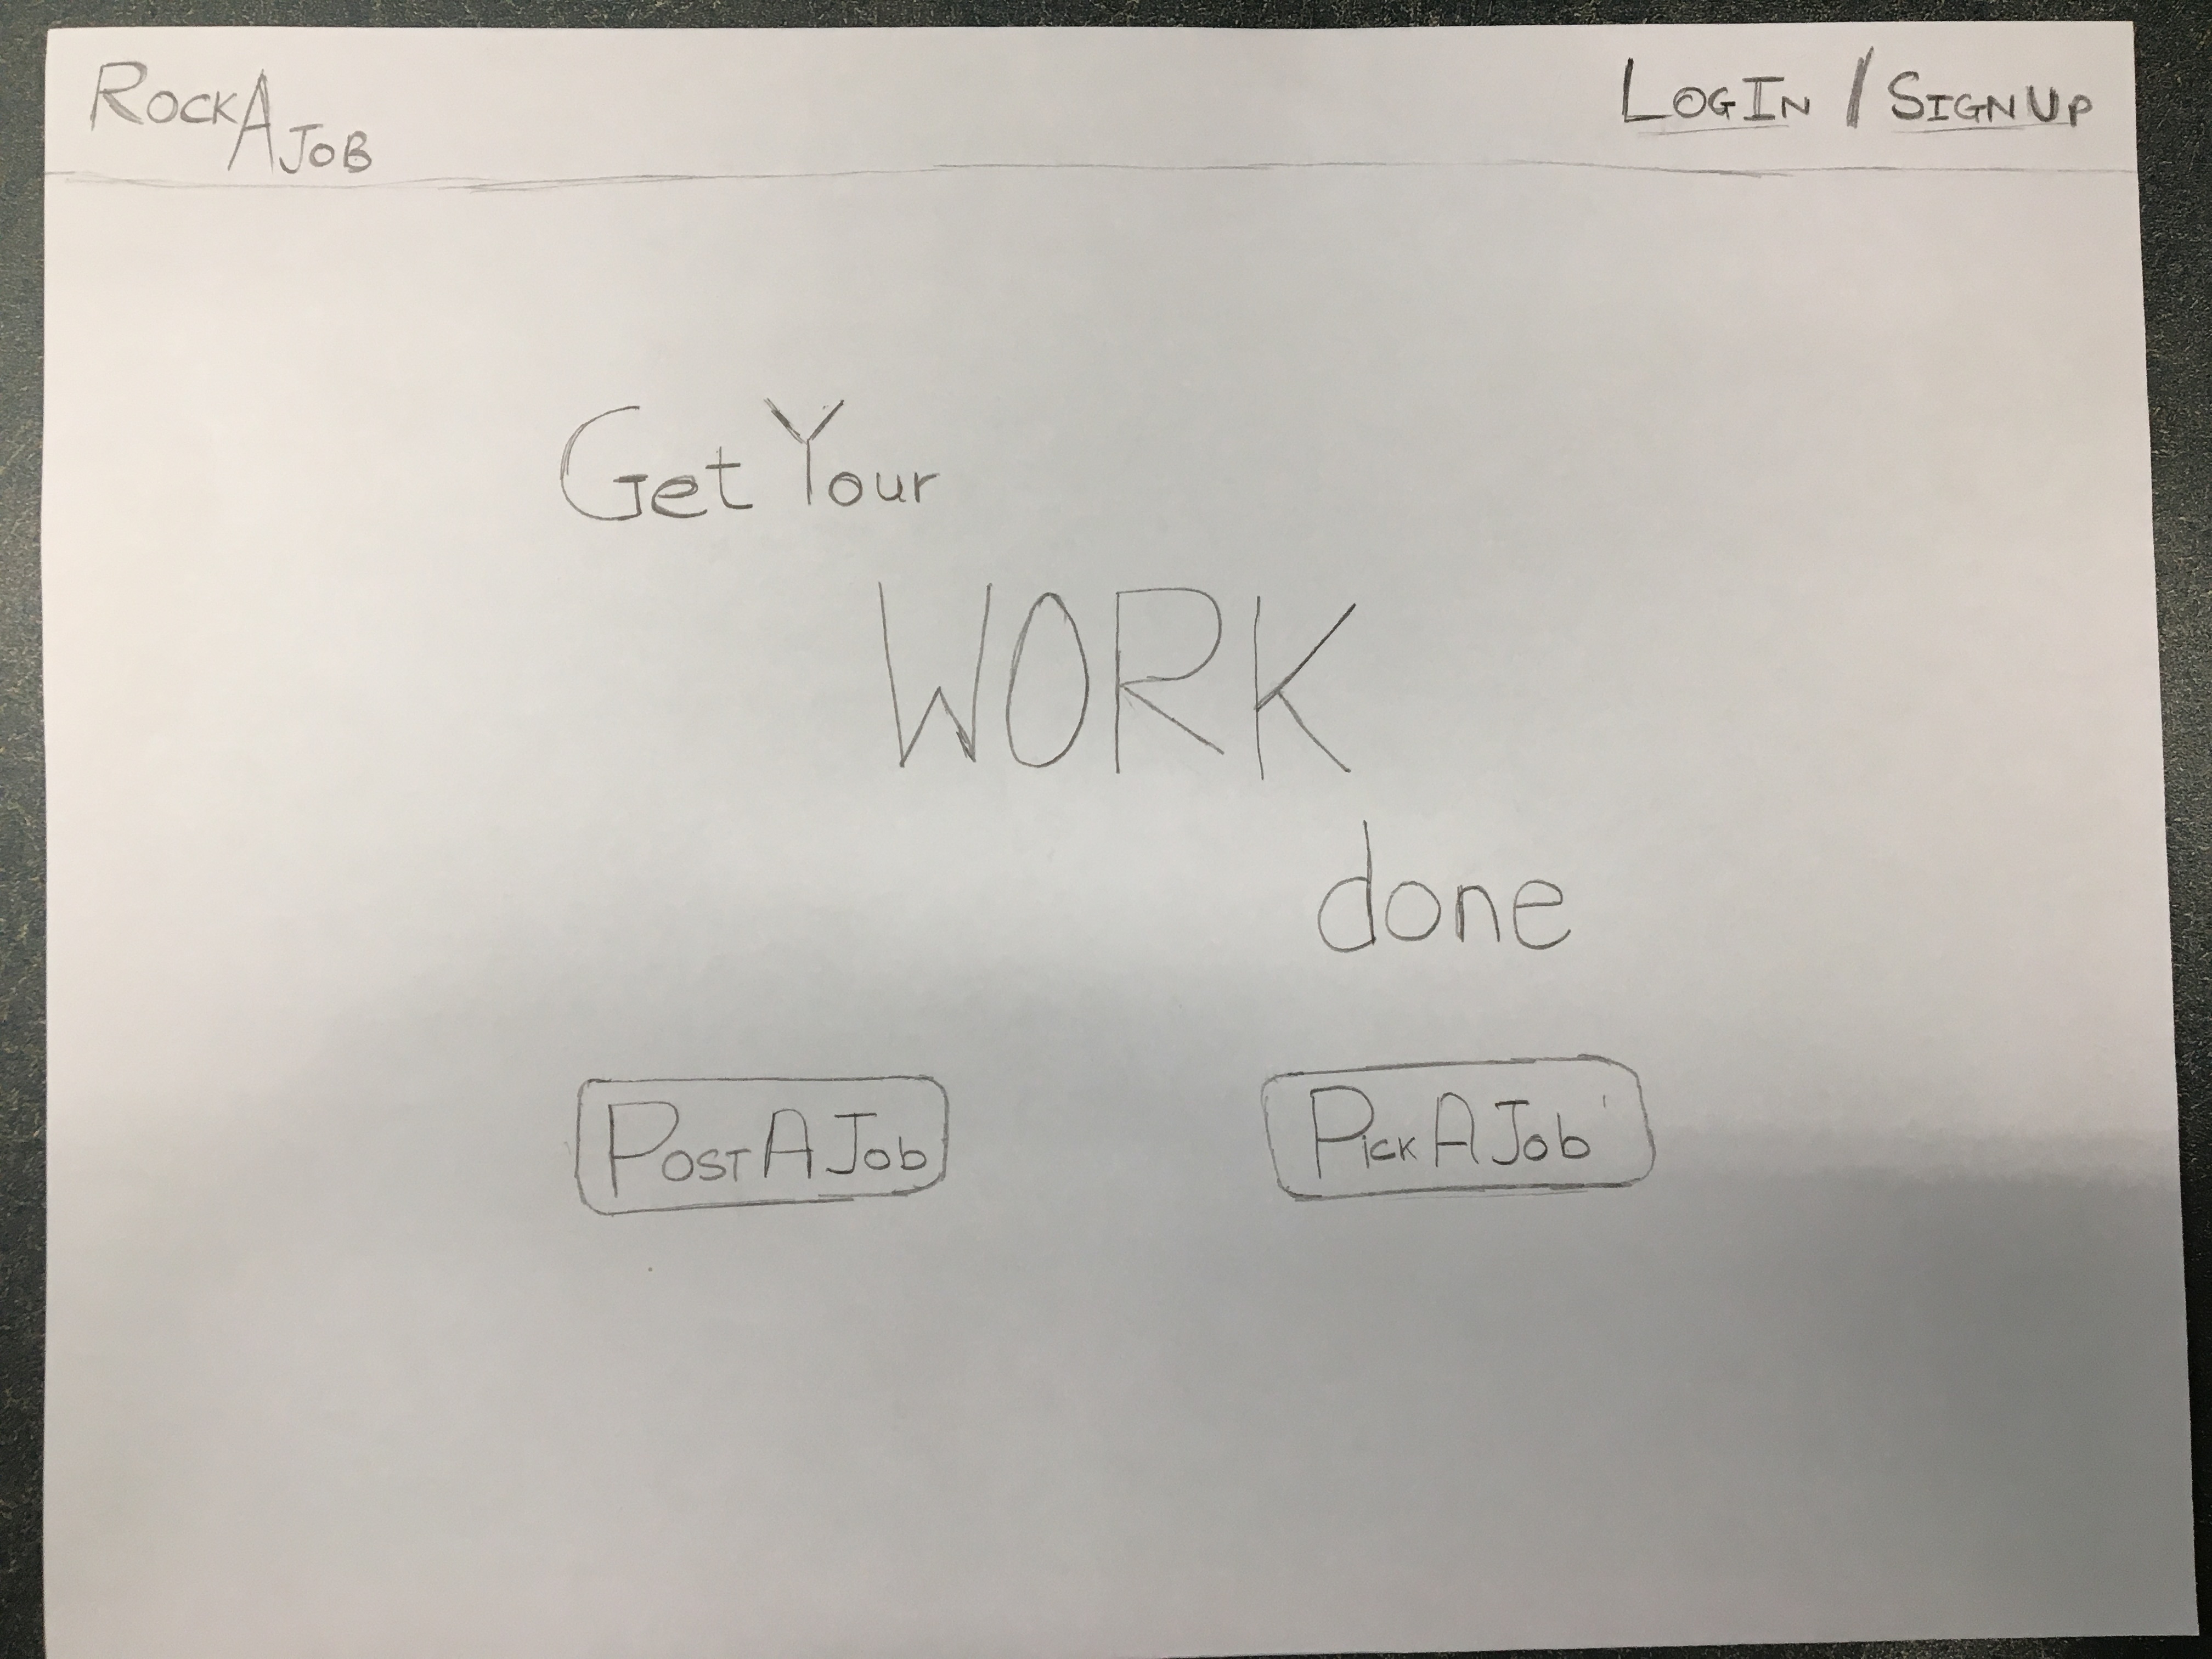 ROCKAJOB
LOGIN / SIGNUP
Get Your
WORK
done
POSTAJob
PICKAJob